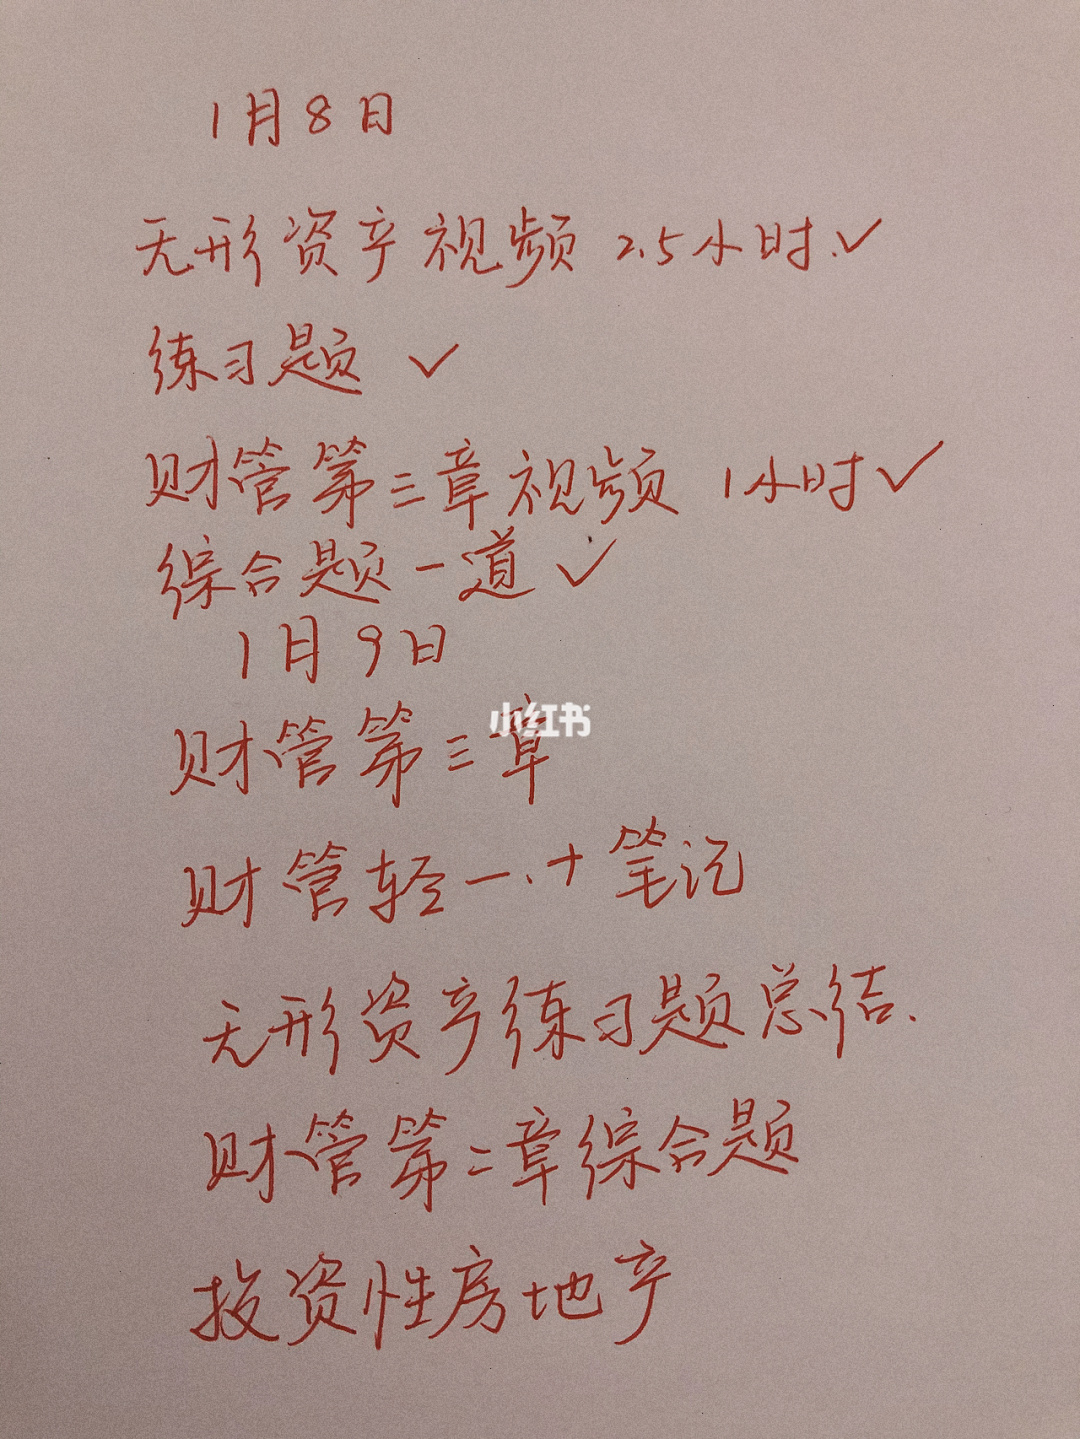 1月8日
无形资产视频 2.5小时.✓
练习题 ✓
财管第三章视频 1小时✓
综合题一道✓
1月9日
小红书
财管第三章
财管轻一.+笔记
无形资产练习题总结.
财管第二章综合题
投资性房地产